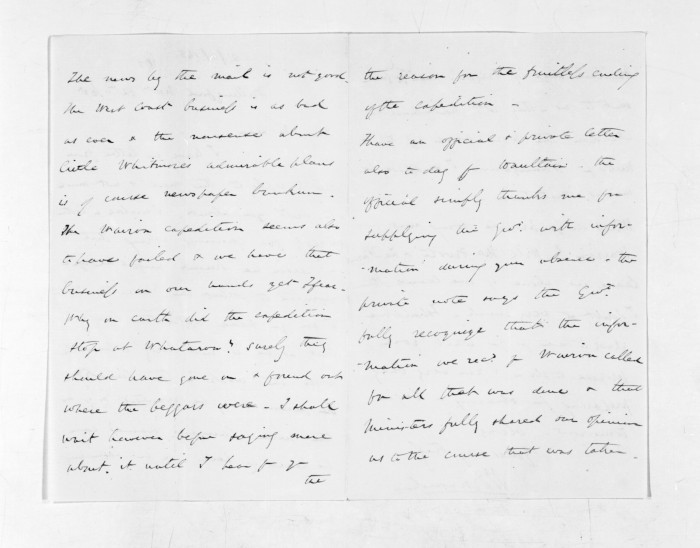 The news by the mail is not good.
The West Coast business is as bad
as ever & the nonsense about
little Whitmore's admirable plans
is of course newspaper bunkum.
The Wairoa expedition seems also
to have failed & we have that
business on our hands yet I fear.
Why on earth did the expedition
stop at Whataroa? Surely they
should have gone on & found out
where the beggars were - I shall
wait however before saying more
about it until I hear fr yr
the
the reason for the fruitless ending
of the expedition -
I have an official & private letter
also to day fr the
official simply thanks me for
supplying the Govt. with infor-
-mation during your absence - the
private note says the Govt.
fully recognize that the infor-
-mation we recd. fr Wairoa called
for all that was done & that
Ministers fully shared our opinion
as to the course that was taken.